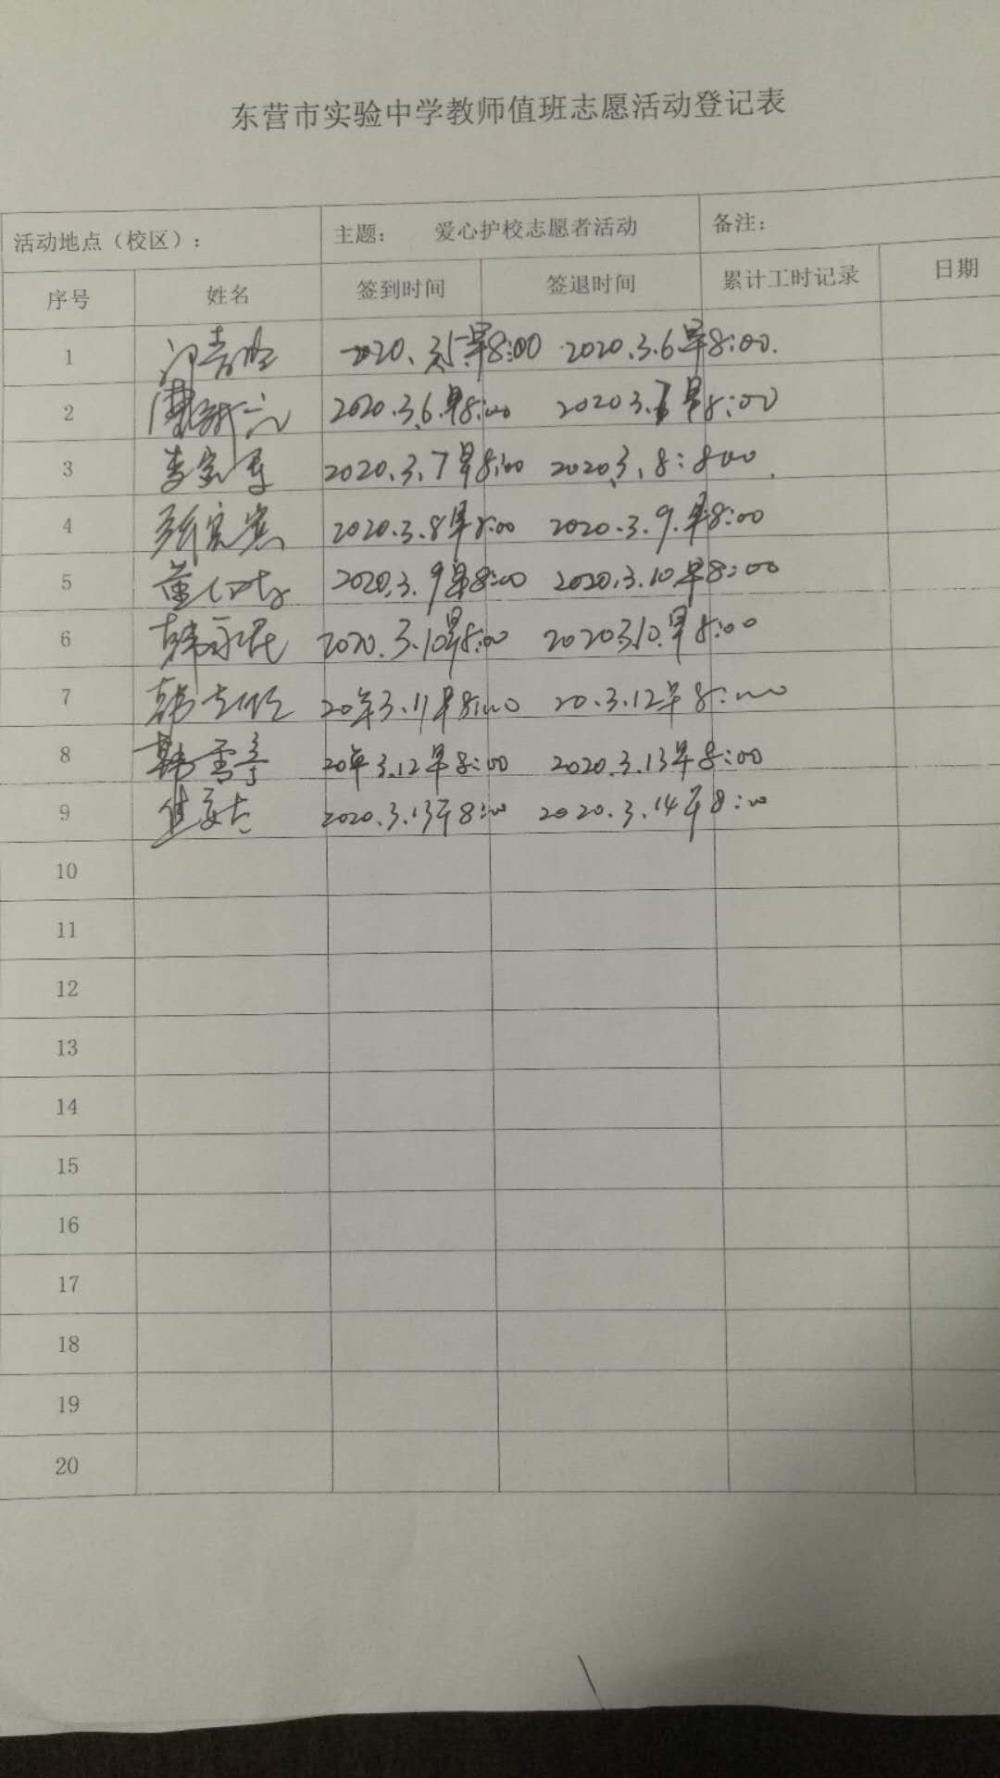 东营市实验中学教师值班志愿活动登记表
活动地点（校区）： 主题： 爱心护校志愿者活动 备注：
序号 姓名 签到时间 签退时间 累计工时记录 日期
1 2020.3.5.早8:00 2020.3.6早8:00.
2 2020.3.6.早8:00 2020 3.7早8:00
3 2020.3.7早8:00 2020.3.8:800
4 2020.3.8早8:00 2020.3.9.早8:00
5 2020.3.9早8:00 2020.3.10早8:00
6 韩 2020.3.10早8:00 2020 3.10.早8:00
7 韩 20年3.11早8:00 20.3.12早8:00
8 韩雪亭 20年3.12早8:00 2020.3.13早8:00
9 2020.3.13早8:00 2020.3.14早8:00
10
11
12
13
14
15
16
17
18
19
20